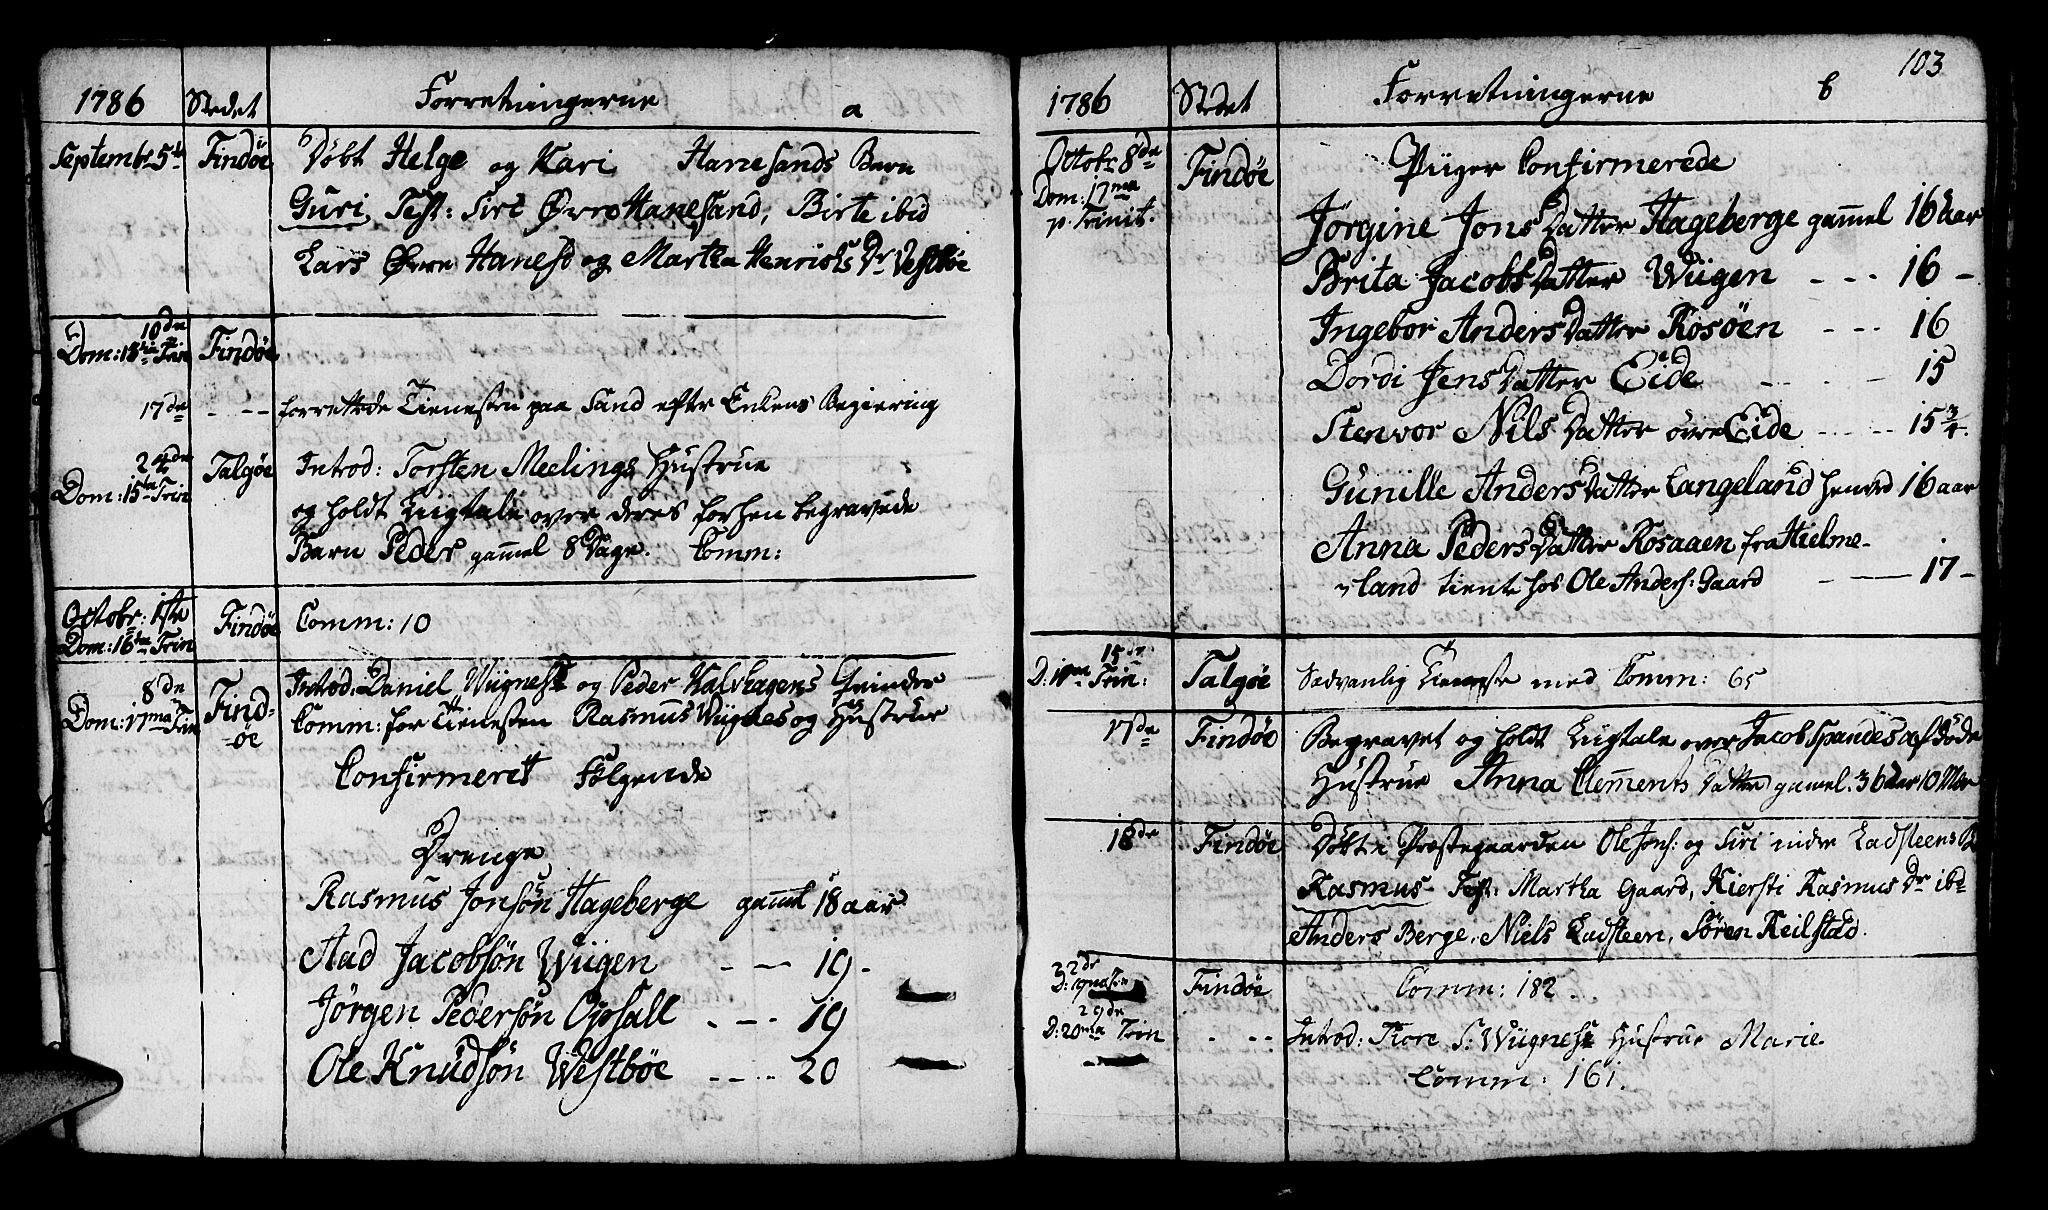 1786 Stedet Forretningerne a
Septembr 5te Findøe Døbt Helge og Kari Hanesands Barn
Guri, Test: Siri Øvre Hanesand, Birte ibid
Lars Øvre Hanesd og Martha Henrichs Dr Vestbøe
10de
Dom: 13tia Trin Findøe
17de - - - forrettede Tienesten paa Sand efter Enkens Begiering
24de Talgøe Introd: Torsten Meelings Hustrue
Dom: 15ta Trin og holdt Liigtale over deres forhen begravede
Barn Peder gam̄el 8 Dage. Comm:
Octobr: 1ste Findøe Comm: 10
Dom: 16ta Trin
8de Find- Introd: Daniel Wiignes og Peder Kalvhagens Qvinder
Dom: 17ma Trin -øe Comm: for Tienesten Rasmus Wiignes og Hustrue
Confirmerit Følgende
Drenge
Rasmus Jonsøn Hageberge gam̄el 18 aar
Aad Jacobsøn Wiigen - — 19 -
Jørgen Pedersøn Opsall - - - 19
Ole Knudsøn Westbøe - - - - 20
103
1786 Stedet Forretningerne b
Octobr 8de Findøe Piiger Confirmerede
Dom: 17ma
p. Trinit.
Jørgine Jons Datter Hageberge gam̄el 16 aar
Brita Jacobs Datter Wiigen - - - 16 -
Ingebor Anders Datter Rosøen - - - 16
Dordi Jens Datter Eide - - - - 15
Stenvor Nils Datter øvre Eide - - - - 15 3/4.
Gunille Anders Datter Langeland henved 16 aar
Anna Peders Datter Rosaaen fra Hielme-
land tient hos Ole Anders: Gaard - — 17 -
15de
D: 18ma Trin: Talgøe Sædvanlig Tieneste med Comm: 65
17de Findøe Begravet og holdt Liigtale over Jacob Spandes afdøde
Hustrue Anna Clem̄ents Datter gam̄el. 36 aar 10 Mdr
18de Findøe Døbt i Præstegaarden Ole Jons: og Siri indre Ladsteens B
Rasmus Test: Martha Gaard, Kiersti Rasmus Dr ibd
Anders Berge, Niels Ladsteen, Søren Reilstad.
22de
D: 19na Trin Findøe Comm: 182.
29de
D: 20ma Trin - - - Introd: Tore S: Wiignes Hustrue Marie
Comm: 161.